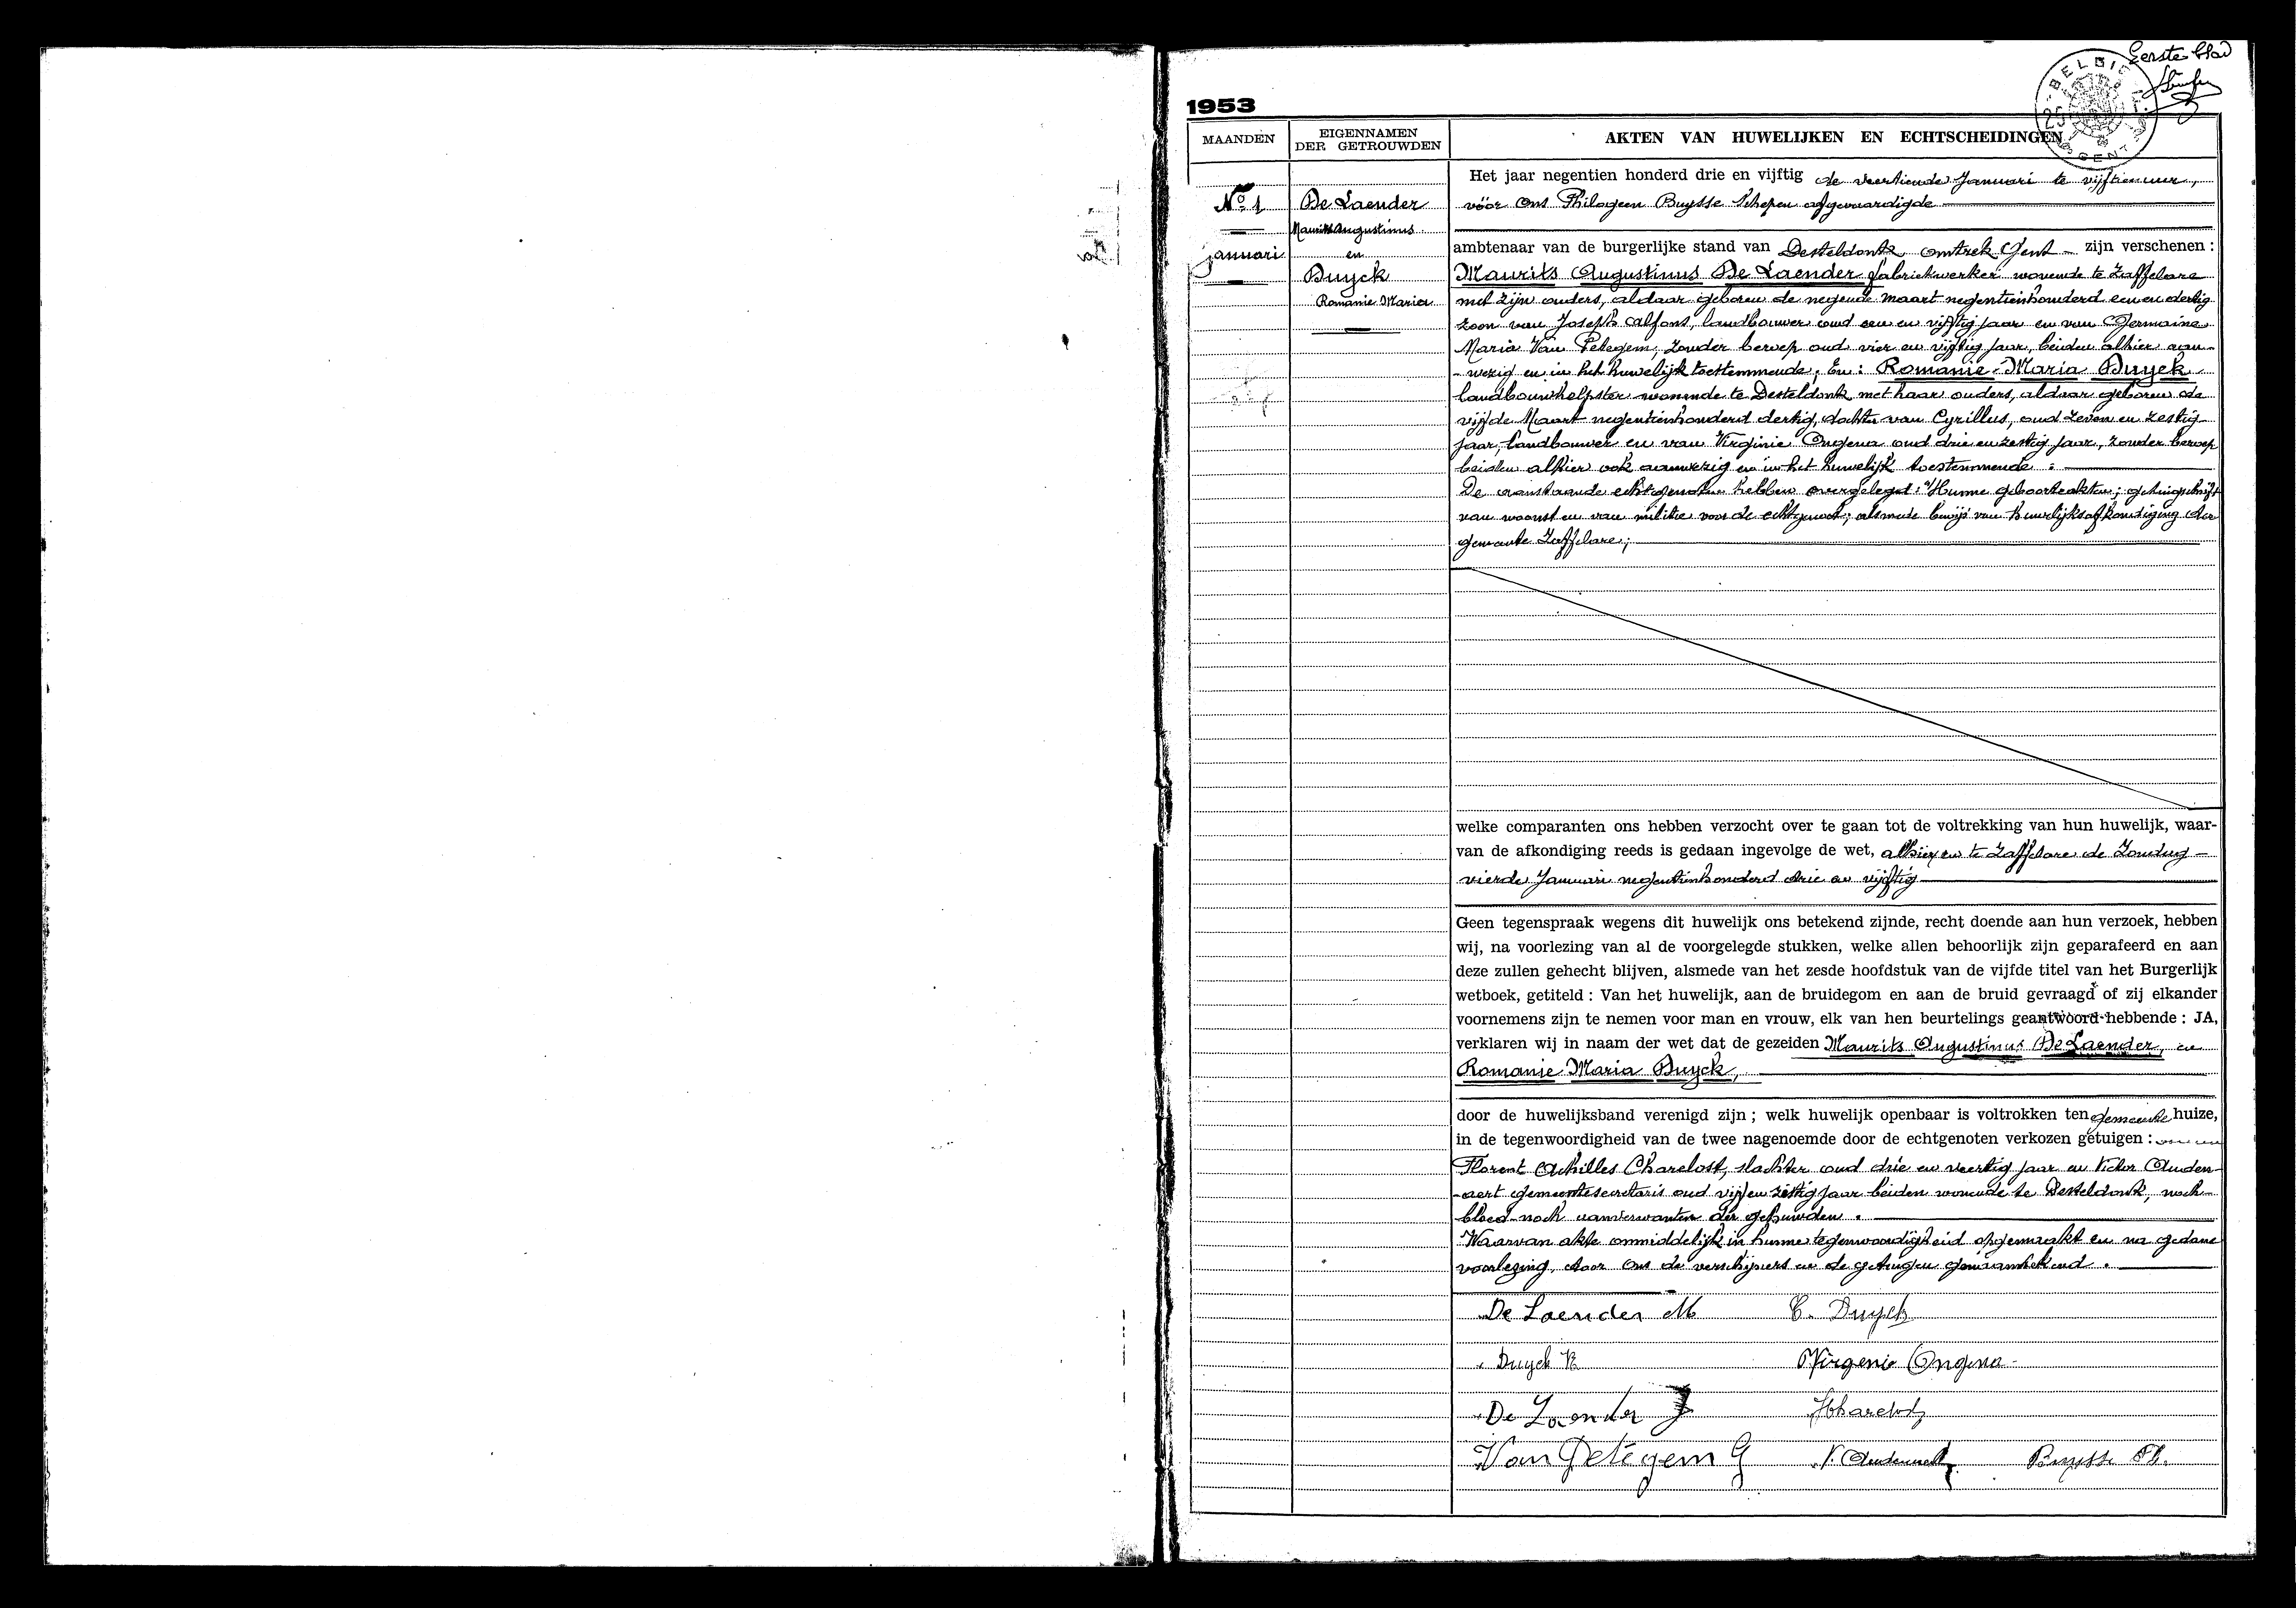 Eerste blad
BELGIE
GENT
1953
MAANDEN
EIGENNAMEN
DER GETROUWDEN
AKTEN VAN HUWELIJKEN EN ECHTSCHEIDINGEN
No 1
januari
De Laender
Maurits Augustinus
en
Duyck
Romanie Maria
Het jaar negentien honderd drie en vijftig de veertiende Januari te vijftien uur,
vóór Ons Philogeen Buysse Schepen afgevaardigde
ambtenaar van de burgerlijke stand van Desteldonk, omtrek Gent - zijn verschenen :
Maurits Augustinus De Laender fabriekwerker wonende te Zaffelare
met zijn ouders, aldaar geboren de negende maart negentienhonderd een en dertig
zoon van Joseph Alfons, landbouwer oud een en vijftig jaar en van Germaine
Maria Van Petegem, zonder beroep oud vier en vijftig jaar, beiden alhier aan-
-wezig en in het huwelijk toestemmende; En: Romanie-Maria Duyck
landbouwhelpster wonende te Desteldonk met haar ouders, aldaar geboren de
vijfde Maart negentienhonderd dertig, dochter van Cyrillus, oud zeven en zestig
jaar, landbouwer en van Virginie Ongena oud drie en zestig jaar, zonder beroep
beiden alhier ook aanwezig en in het huwelijk toestemmende ;
De aanstaande echtgenoten hebben overgelegd: Hunne geboorteakten; getuigschrift
van woonst en van militie voor de echtgenoot; alsmede bewijs van huwelijksafkondiging der
gemeente Zaffelare;
welke comparanten ons hebben verzocht over te gaan tot de voltrekking van hun huwelijk, waar-
van de afkondiging reeds is gedaan ingevolge de wet, alhier en te Zaffelare de Zondag -
vierde Januari negentienhonderd drie en vijftig
Geen tegenspraak wegens dit huwelijk ons betekend zijnde, recht doende aan hun verzoek, hebben
wij, na voorlezing van al de voorgelegde stukken, welke allen behoorlijk zijn geparafeerd en aan
deze zullen gehecht blijven, alsmede van het zesde hoofdstuk van de vijfde titel van het Burgerlijk
wetboek, getiteld : Van het huwelijk, aan de bruidegom en aan de bruid gevraagd of zij elkander
voornemens zijn te nemen voor man en vrouw, elk van hen beurtelings geantwoord hebbende : JA,
verklaren wij in naam der wet dat de gezeiden Maurits Augustinus De Laender, en
Romanie Maria Duyck,
door de huwelijksband verenigd zijn ; welk huwelijk openbaar is voltrokken ten gemeente huize,
in de tegenwoordigheid van de twee nagenoemde door de echtgenoten verkozen getuigen :
Florent Achilles Charelost, slachter oud drie en veertig jaar en Victor Auden-
-aert gemeentesecretaris oud vijf en zestig jaar beiden wonende te Desteldonk, noch
bloed- noch aanverwanten der gehuwden.
Waarvan akte onmiddelijk in hunne tegenwoordigheid opgemaakt en na gedane
voorlezing, door Ons de verschijners en de getuigen genaamtekend.
De Laender M
C. Duyck
Duyck R
Virgenie Ongena
De Laender J
Charelost
Van Petegem G
V. Audenaert
Buysse Ph.